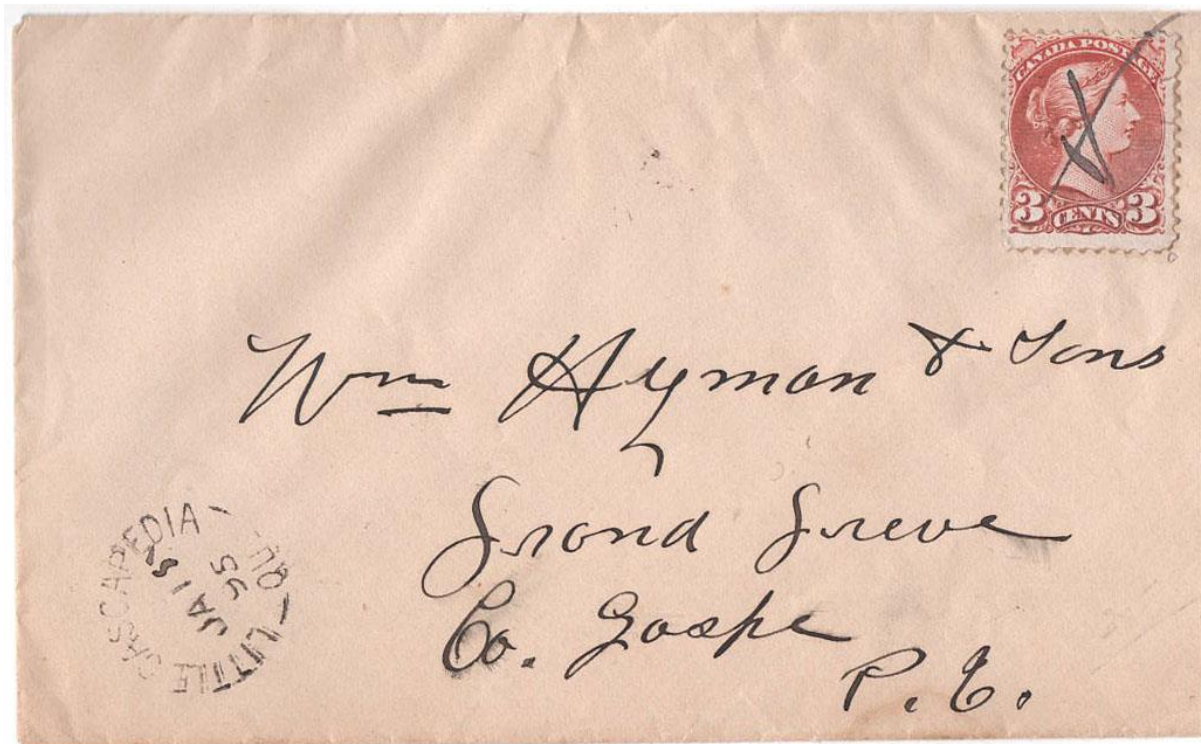 CANADA POSTAGE
3 CENTS 3
Wm Hyman & Sons
Grand Greve
Co. Gaspe
P.Q.
LITTLE CASCAPEDIA
QU.
JA 18
95